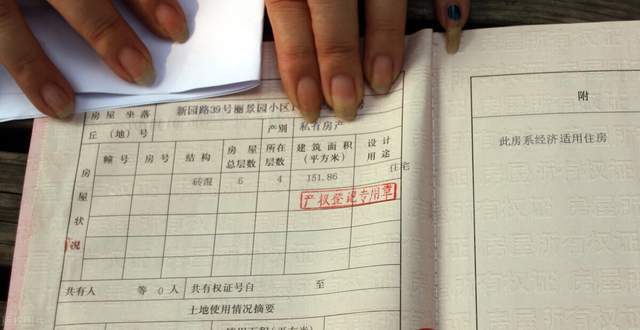 房屋坐落 新园路39号丽景园小区
丘（地）号 产别 私有房产
房屋状况
幢号 房号 结构 房屋总层数 所在层数 建筑面积（平方米） 设计用途
砖混 6 4 151.86 住宅
产权登记专用章
共有人 等 0 人 共有权证号自 至
土地使用情况摘要
附
此房系经济适用住房